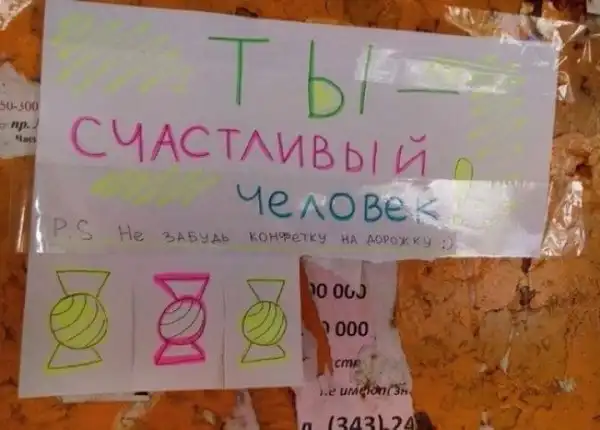 ТЫ —
СЧАСТЛИВЫЙ
ЧЕЛОВЕК!
P.S Не ЗАБУДЬ КОНФЕТКУ НА ДОРОЖКУ :)
50-300
пр.
00 000
000
(343) 24